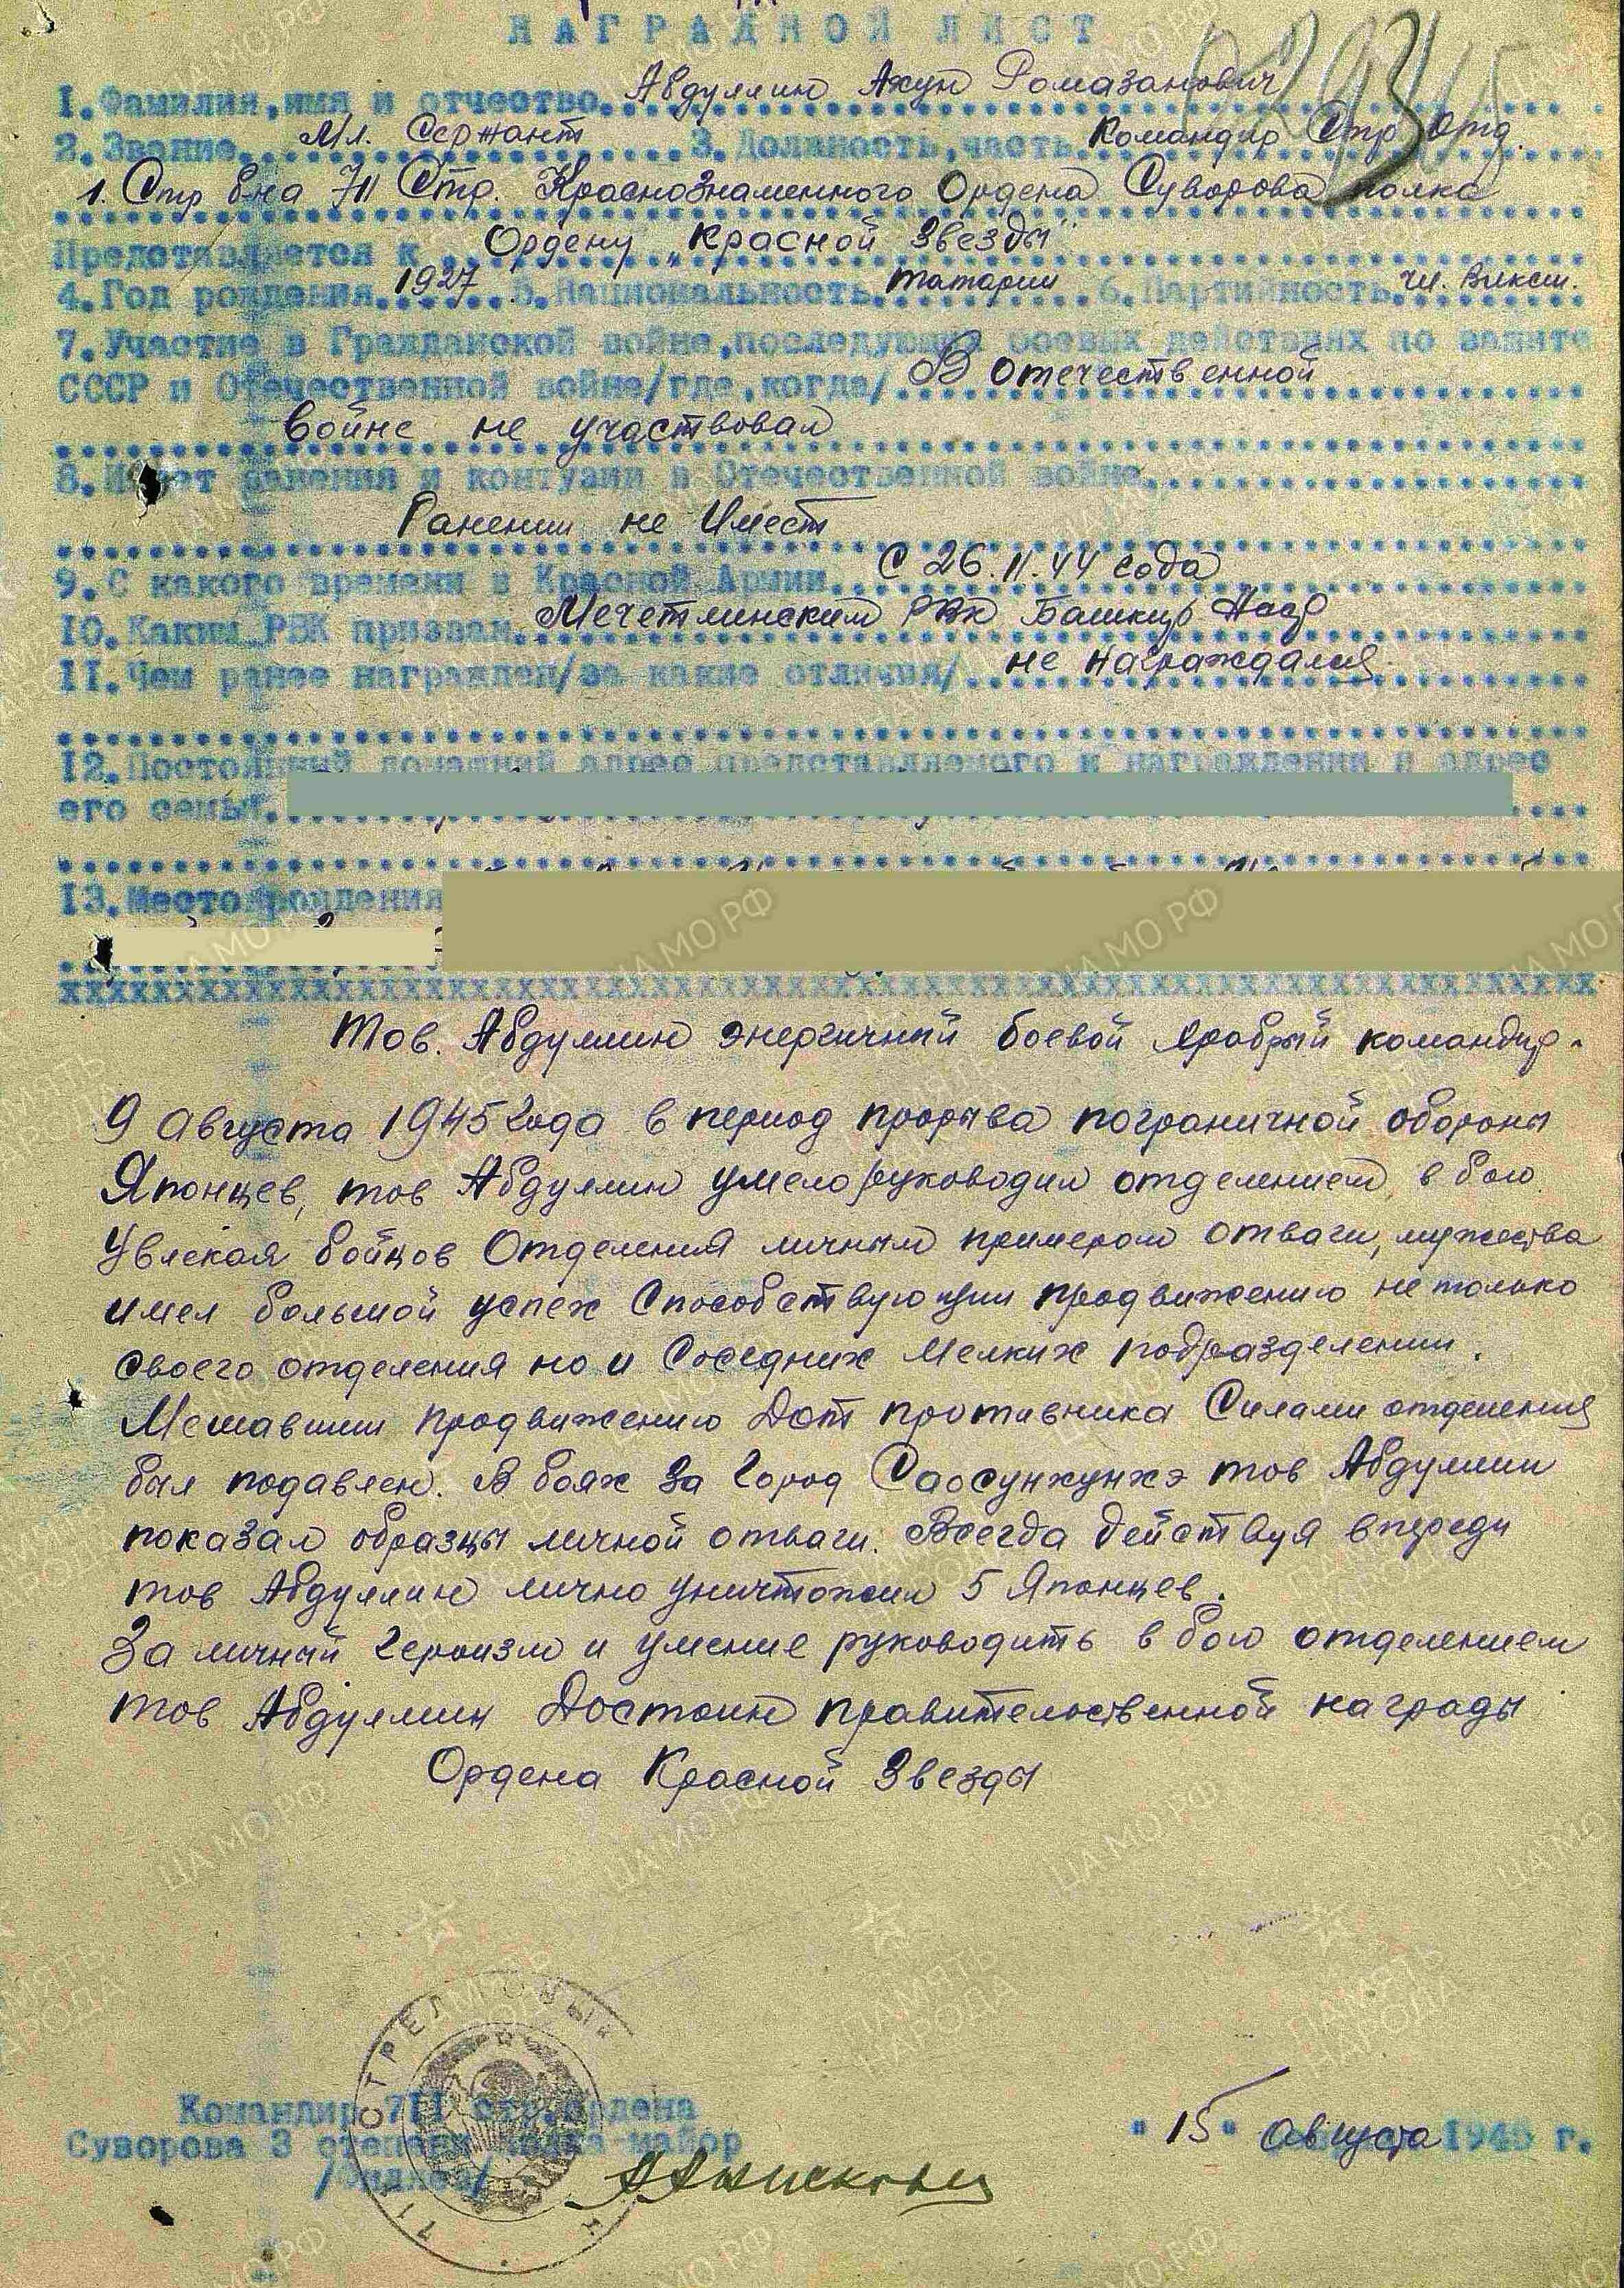 НАГРАДНОЙ ЛИСТ
1. Фамилия, имя и отчество Абдуллин Ахун Ромазанович
2. Звание Мл. Сержант 3. Должность, часть Командир Стр Отд.
1. Стр б-на 711 Стр. Краснознаменного Ордена Суворова полка
Представляется к Ордену „Красной Звезды"
4. Год рождения 1927 5. Национальность татарин 6. Партийность чл. Влксм.
7. Участие в Гражданской войне, последующих боевых действиях по защите
СССР и Отечественной войне/где, когда/ В отечественной
войне не участвовал
8. Имеет ранения и контузии в Отечественной войне
Ранении не Имеет
9. С какого времени в Красной Армии С 26.11.44 года
10. Каким РВК призван Мечетлинским РВК Башкир Асср
11. Чем ранее награжден/за какие отличия/ не награждался
12. Постоянный домашний адрес представляемого к награждению и адрес
его семьи
13. Место рождения
Тов. Абдуллин энергичный боевой храбрый командир.
9 августа 1945 года в период прорыва пограничной обороны
Японцев, тов Абдуллин умело руководил отделением, в бою
Увлекая бойцов Отделения личным примером отваги, мужества
имел большой успех Способствующии продвижению не только
своего отделения но и Соседних Мелких подразделении.
Мешавшии продвижению Дот противника Силами отделения
был подавлен. В боях за Город Саосунхунхэ тов Абдуллин
показал образцы личной отваги. Всегда действуя впереди
тов Абдуллин лично уничтожил 5 Японцев.
За личный героизм и умение руководить в бою отделением
тов Абдуллин Достоин правительственной награды
Ордена Красной Звезды
СТРЕЛКОВЫЙ
711
Командир 711 стр. ордена
Суворова 3 степени полка майор
"15" августа 1945 г.
ЦАМО.РФ
ПАМЯТЬ НАРОДА